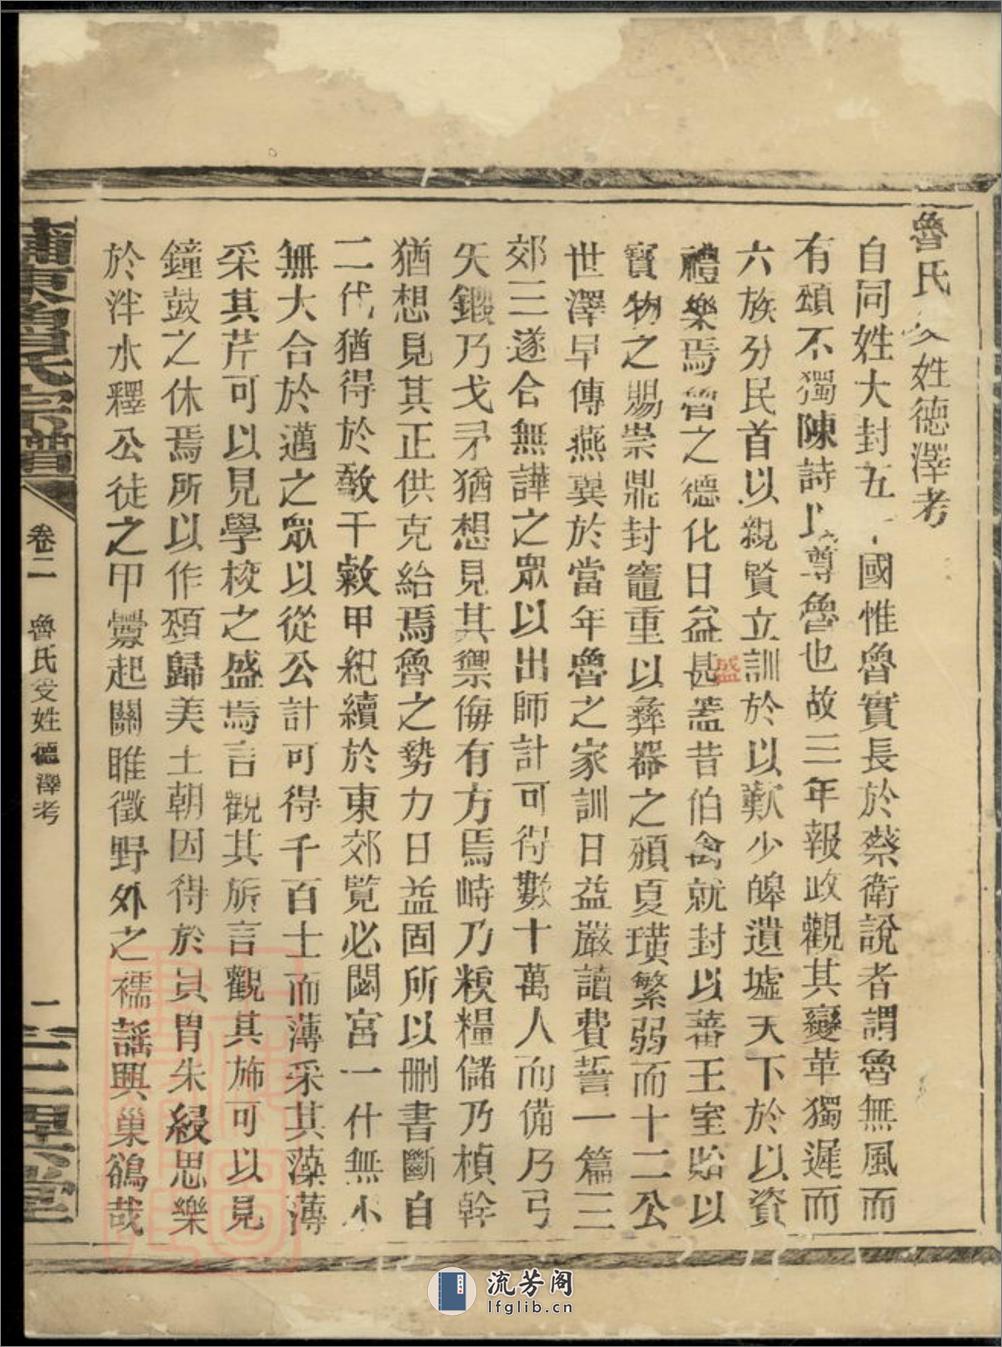 魯氏受姓德澤考
自同姓大封五十國惟魯實長於蔡衛說者謂魯無風而
有頌不獨陳詩以尊魯也故三年報政觀其變革獨遲而
六族分民首以親賢立訓於以歎少皞遺墟天下於以資
禮樂焉魯之德化日益甚蓋昔伯禽就封以蕃王室貽以
盛
寶物之賜崇鼎封竈重以彞器之頒夏璜繁弱而十二公
世澤早傳燕翼於當年魯之家訓日益嚴讀費誓一篇三
郊三遂合無譁之眾以出師計可得數十萬人而備乃弓
矢鍛乃戈矛猶想見其禦侮有方焉峙乃糗糧儲乃楨幹
猶想見其正供克給焉魯之勢力日益固所以刪書斷自
二代猶得於敿干敹甲紀續於東郊覽必閟宮一什無小
無大合於邁之眾以從公計可得千百士而薄采其藻薄
采其芹可以見學校之盛焉言觀其旂言觀其斾可以見
鐘鼓之休焉所以作頌歸美土朝因得於貝冑朱綅思樂
於泮水釋公徒之甲釁起關睢徵野外之襦謠興巢鵒哉
蒲東魯氏宗譜
卷二
魯氏受姓德澤考
一
三異堂
流芳阁
lfglib.cn